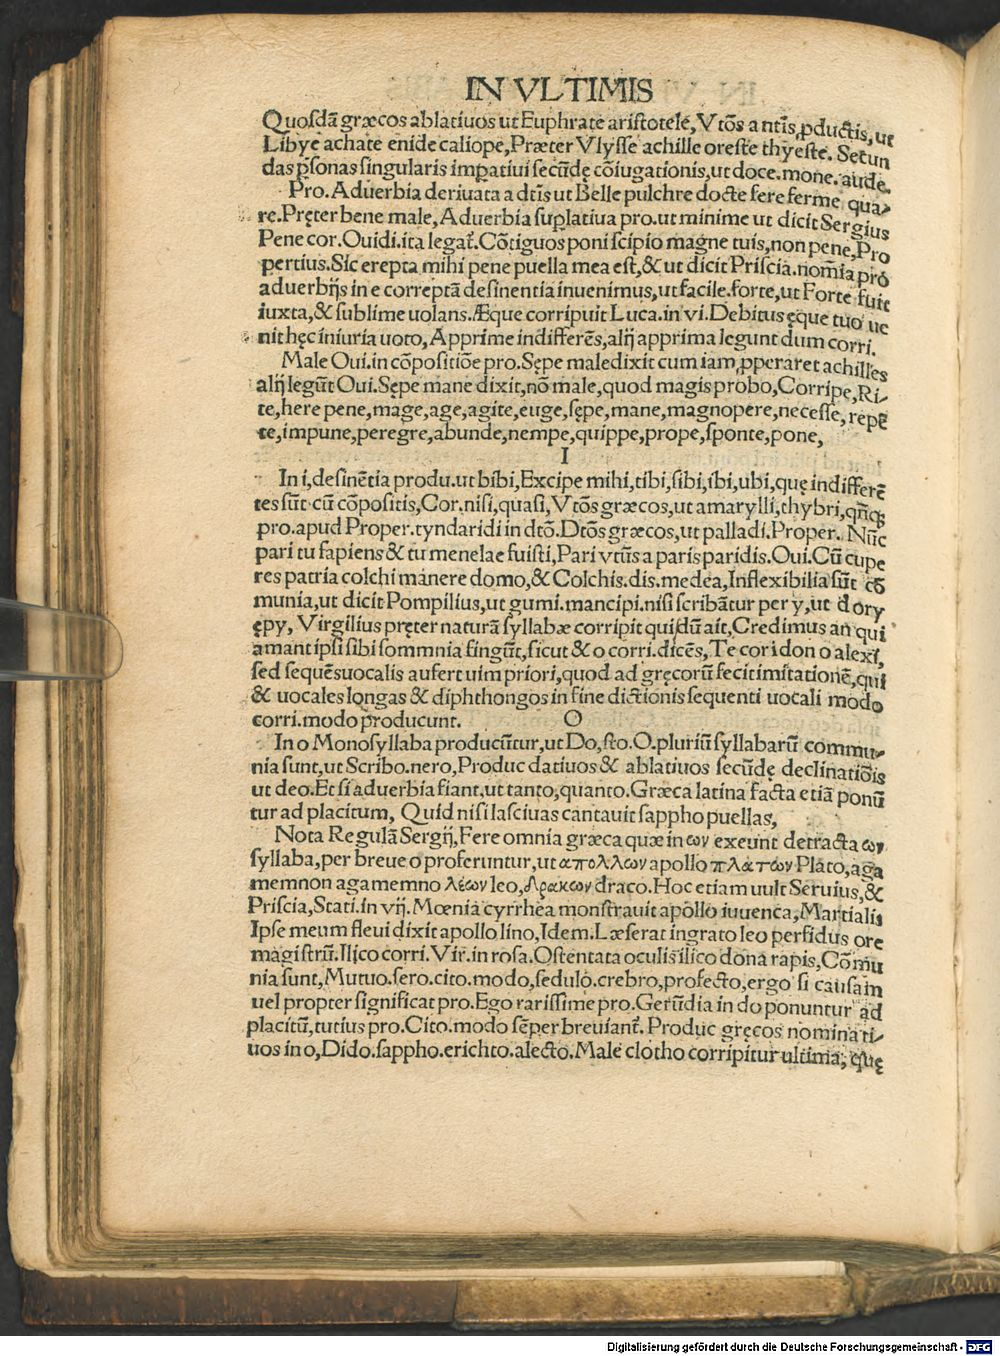 IN VLTIMIS
Quosdā græcos ablatiuos ut Euphrate aristotele, Vtōs a ntīs, pductis, ut
Libye achate enide caliope, Præter Vlysse achille oreste thyeste. Secun
das psonas singularis impatiui secūdę cōiugationis, ut doce. mone. aude.
Pro. Aduerbia deriuata a dtīs ut Belle pulchre docte fere ferme qua-
re. Pręter bene male, Aduerbia suplatiua pro. ut minime ut dicit Sergius
Pene cor. Ouidi. ita legat̄. Cōtiguos poni scipio magne tuis, non pene, Pro
pertius. Sic erepta mihi pene puella mea est, & ut dicit Priscia. nomīa pro
aduerbijs in e correptā desinentia inuenimus, ut facile. forte, ut Forte fuit
iuxta, & sublime uolans. Æque corripuit Luca. in vi. Debitus ęque tuo ue
nit hęc iniuria uoto, Apprime indifferēs, alij apprima legunt dum corri.
Male Oui. in cōpositiōe pro. Sępe maledixit cum iam, pperaret achilles
alij legūt Oui. Sępe mane dixit, nō male, quod magis probo, Corripe, Ri-
te, here pene, mage, age, agite, euge, sępe, mane, magnopere, necesse, repē
te, impune, peregre, abunde, nempe, quippe, prope, sponte, pone,
I
In i, desinētia produ. ut bibi, Excipe mihi, tibi, sibi, ibi, ubi, quę indifferē
tes sūt cū cōpositis, Cor. nisi, quasi, Vtōs græcos, ut amarylli, thybri, qñq;
pro. apud Proper. tyndaridi in dtō. Dtōs græcos, ut palladi. Proper. Nūc
pari tu sapiens & tu menelae fuisti, Pari vtūs a paris paridis. Oui. Cū cupe
res patria colchi manere domo, & Colchis. dis. medea, Inflexibilia sūt cō
munia, ut dicit Pompilius, ut gumi. mancipi. nisi scribātur per y, ut dory
ępy, Virgilius pręter naturā syllabæ corripit qui, dū ait, Credimus an qui
amant ipsi sibi sommnia fingūt, sicut & o corri. dicēs, Te coridon o alexi,
sed sequēs uocalis aufert uim priori, quod ad gręcorū fecit imitationē, qui
& uocales longas & diphthongos in fine dictionis sequenti uocali modo
corri. modo producunt. O
In o Monosyllaba producūtur, ut Do, sto. O. pluriū syllabarū commu-
nia sunt, ut Scribo. nero, Produc datiuos & ablatiuos secūdę declinatiōis
ut deo. Et si aduerbia fiant. ut tanto, quanto. Græca latina facta etiā ponū
tur ad placitum, Quid nisi lasciuas cantauit sappho puellas,
Nota Regulā Sergij, Fere omnia græca quæ in ων exeunt detracta ων
syllaba, per breue o proferuntur, ut απολλων apollo πλάτων Plato, aga
memnon agamemno λέων leo, δρακων draco. Hoc etiam uult Seruius, &
Priscia, Stati. in vij. Mœnia cyrrhea monstrauit apollo iuuenca, Martialis
Ipse meum fleui dixit apollo lino, Idem. Læserat ingrato leo perfidus ore
magistrū. Ilico corri. Vir. in rosa. Ostentata oculis ilico dona rapis, Cōmu
nia sunt, Mutuo. sero. cito. modo, sedulo. crebro, profecto, ergo si causam
uel propter significat pro. Ego rarissime pro. Gerūdia in do ponuntur ad
placitū, tutius pro. Cito. modo sēper breuiant̄. Produc gręcos nominati-
uos in o, Dido. sappho. erichto. alecto. Male clotho corripitur ultima, quę
Digitalisierung gefördert durch die Deutsche Forschungsgemeinschaft - DFG